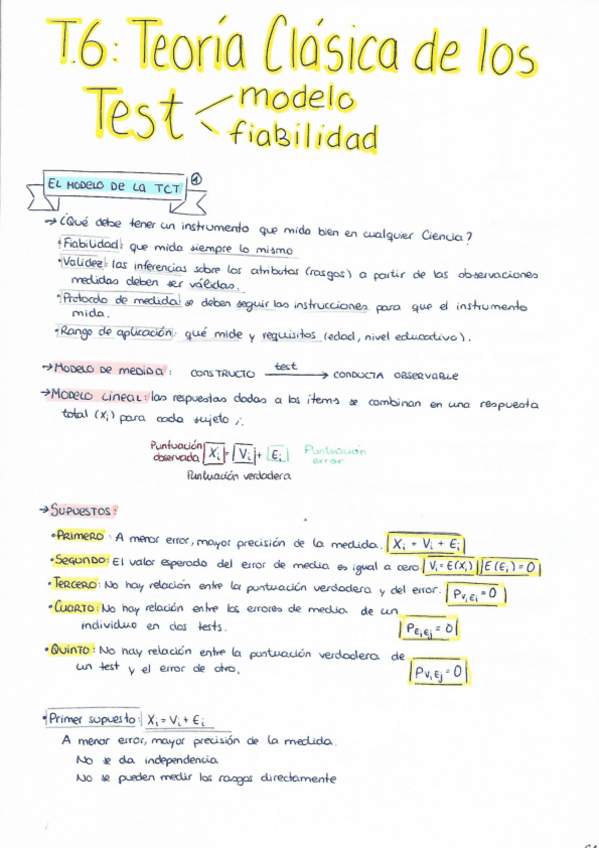 T.6: Teoría Clásica de los
Test < modelo
fiabilidad
EL MODELO DE LA TCT ①
→ ¿Qué debe tener un instrumento que mida bien en cualquier Ciencia?
• Fiabilidad: que mida siempre lo mismo
• Validez: las inferencias sobre los atributos (rasgos) a partir de las observaciones
medidas deben ser válidas.
• Protocolo de medida: se deben seguir las instrucciones para que el instrumento
mida.
• Rango de aplicación: qué mide y requisitos (edad, nivel educativo).
→ MODELO DE MEDIDA: CONSTRUCTO test → CONDUCTA OBSERVABLE
→ MODELO LINEAL: las respuestas dadas a los ítems se combinan en una respuesta
total (Xi) para cada sujeto i.
Puntuación observada Xi = Vi + Ei Puntuación error
Puntuación verdadera
→ SUPUESTOS:
• PRIMERO: A menor error, mayor precisión de la medida. Xi = Vi + Ei
• SEGUNDO: El valor esperado del error de media es igual a cero Vi = E(Xi) E(Ei) = 0
• TERCERO: No hay relación entre la puntuación verdadera y del error. Pvi,Ei = 0
• CUARTO: No hay relación entre los errores de media de un
individuo en dos tests. PEi,Ej = 0
• QUINTO: No hay relación entre la puntuación verdadera de
un test y el error de otro. Pvi,Ej = 0
• Primer supuesto: Xi = Vi + Ei
A menor error, mayor precisión de la medida.
No se da independencia
No se pueden medir los rasgos directamente